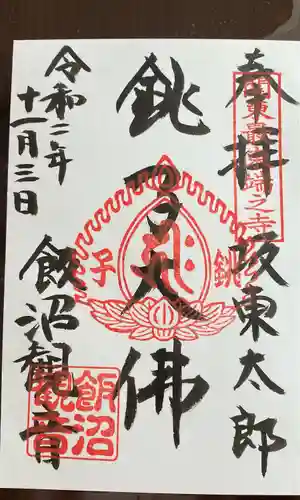 奉拝 阪東太郎
関東最東端之寺
銚子大佛
銚子
令和二年
十一月三日
飯沼観音
飯沼
観音